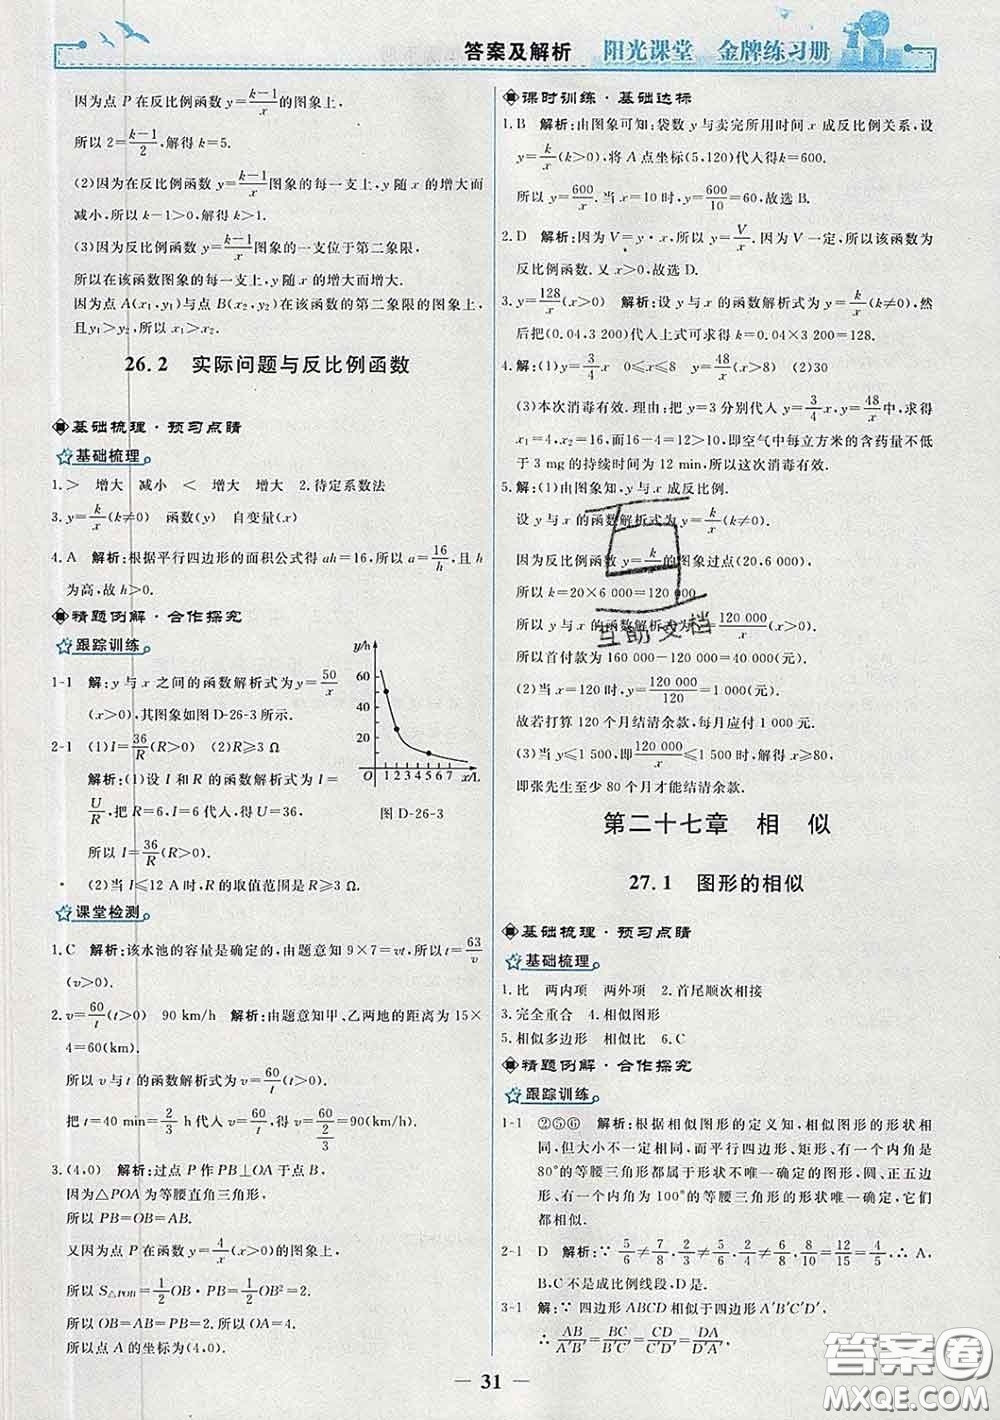 答案及解析 阳光课堂 金牌练习册
因为点 P 在反比例函数 y=\frac{k-1}{x} 的图象上,
所以 2=\frac{k-1}{2},解得 k=5.
(2)因为在反比例函数 y=\frac{k-1}{x} 图象的每一支上,y 随 x 的增大而
减小,所以 k-1>0,解得 k>1.
(3)因为反比例函数 y=\frac{k-1}{x} 图象的一支位于第二象限,
所以在该函数图象的每一支上,y 随 x 的增大而增大.
因为点 A(x₁,y₁)与点 B(x₂,y₂)在该函数的第二象限的图象上,
且 y₁>y₂,所以 x₁>x₂.
26.2 实际问题与反比例函数
基础梳理·预习点睛
基础梳理
1.> 增大 减小 < 增大 增大 2.待定系数法
3.y=\frac{k}{x}(k≠0) 函数(y) 自变量(x)
4.A 解析:根据平行四边形的面积公式得 ah=16,所以 a=\frac{16}{h},且 h
为高,故 h>0.
精题例解·合作探究
跟踪训练
1-1 解:y 与 x 之间的函数解析式为 y=\frac{50}{x}
(x>0),其图象如图 D-26-3 所示.
2-1 (1)I=\frac{36}{R}(R>0) (2)R≥3 Ω
解析:(1)设 I 和 R 的函数解析式为 I=
\frac{U}{R},把 R=6,I=6 代人,得 U=36,
所以 I=\frac{36}{R}(R>0).
(2)当 I≤12 A 时,R 的取值范围是 R≥3 Ω.
y/h
60
50
40
30
20
10
O 1 2 3 4 5 6 7 8 x/L
图 D-26-3
课堂检测
1.C 解析:该水池的容量是确定的,由题意知 9×7=vt,所以 t=\frac{63}{v}
(v>0).
2.v=\frac{60}{t}(t>0) 90 km/h 解析:由题意知甲、乙两地的距离为 15×
4=60(km).
所以 v 与 t 的函数解析式为 v=\frac{60}{t}(t>0).
把 t=40 min=\frac{2}{3} h 代人 v=\frac{60}{t},得 v=\frac{60}{\frac{2}{3}}=90(km/h).
3.(4,0) 解析:过点 P 作 PB⊥OA 于点 B.
因为△POA 为等腰直角三角形,
所以 PB=OB=AB.
又因为点 P 在函数 y=\frac{4}{x}(x>0)的图象上,
所以 S△POB=\frac{1}{2}OB·PB=\frac{1}{2}OB²=2.
所以 OB=AB=PB=2,所以 OA=4.
所以点 A 的坐标为(4,0).
课时训练·基础达标
1.B 解析:由图象可知:袋数 y 与卖完所用时间 x 成反比例关系,设
y=\frac{k}{x}(k>0),将 A 点坐标(5,120)代人得 k=600.
所以 y=\frac{600}{x}.当 x=10 时,y=\frac{600}{10}=60,故选 B.
2.D 解析:因为 V=y·x,所以 y=\frac{V}{x}.因为 V 一定,所以该函数为
反比例函数.又 x>0,故选 D.
3.y=\frac{128}{x}(x>0) 解析:设 y 与 x 的函数解析式为 y=\frac{k}{x}(k≠0),然
后把(0.04,3 200)代人上式可求得 k=0.04×3 200=128.
4.解:(1)y=\frac{3}{4}x 0≤x≤8 y=\frac{48}{x}(x>8) (2)30
(3)本次消毒有效.理由:把 y=3 分别代人 y=\frac{3}{4}x,y=\frac{48}{x},求得
x₁=4,x₂=16,而 16-4=12>10,即空气中每立方米的含药量不低
于 3 mg 的持续时间为 12 min,所以这次消毒有效.
5.解:(1)由图象知,y 与 x 成反比例.
设 y 与 x 的函数解析式为 y=\frac{k}{x}(k≠0).
因为反比例函数 y=\frac{k}{x}的图象过点(20,6 000),
所以 k=20×6 000=120 000.
所以 y 与 x 的函数解析式为 y=\frac{120 000}{x}(x>0).
所以首付款为 160 000-120 000=40 000(元).
(2)当 x=120 时,y=\frac{120 000}{120}=1 000(元).
故若打算 120 个月结清余款,每月应付 1 000(元).
(3)当 y≤1 500,即\frac{120 000}{x}≤1 500 时,解得 x≥80,
即张先生至少 80 个月才能结清余款.
第二十七章 相 似
27.1 图形的相似
基础梳理·预习点睛
基础梳理
1.比 两内项 两外项 2.首尾顺次相接
3.完全重合 4.相似图形
5.相似多边形 相似比 6.C
精题例解·合作探究
跟踪训练
1-1 ②⑤⑥ 解析:根据相似图形的定义知,相似图形的形状相
同,但大小不一定相同,而平行四边形、矩形、有一个内角为
80°的等腰三角形都属于形状不唯一确定的图形,圆、正五边
形、有一个内角为 100°的等腰三角形的形状唯一确定,它们
都相似.
2-1 D 解析:∵\frac{5}{6}≠\frac{7}{8},\frac{2}{3}≠\frac{4}{5},\frac{2}{5}≠\frac{6}{8},\frac{8}{10}=\frac{12}{15}=\frac{4}{5},∴A,
B,C 不是成比例线段,D 是.
3-1 解:∵四边形 ABCD 相似于四边形 A′B′C′D′,
∴\frac{AB}{A′B′}=\frac{BC}{B′C′}=\frac{CD}{C′D′}=\frac{DA}{D′A′},
互助文档
答案圈
MXQE.COM
31